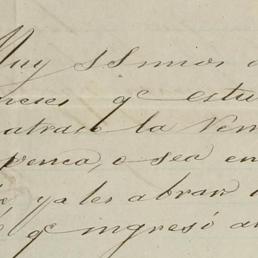 Muy Señores
meses qe estu
atraso la Ven
venca, o sea en
ya les abran
qe ingresó an